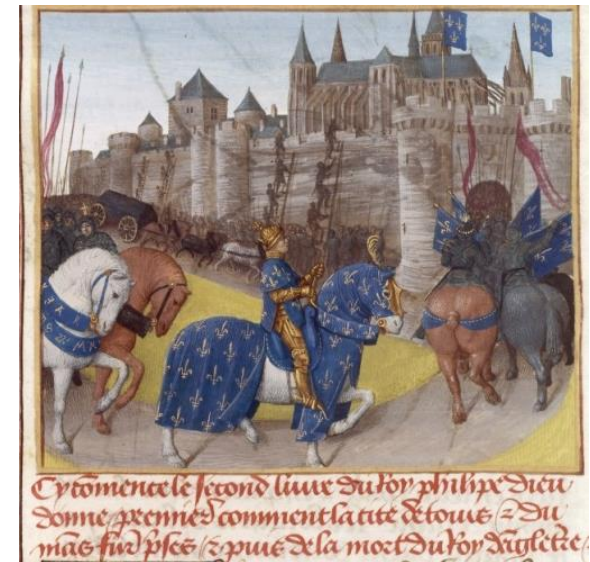 Cy cōmence le second livre du Roy philipe dieu
donne. p̄ennier comment la cite de tours ⁊ du
mãs furẽt prises ⁊ puis de la mort du Roy dãgletẽre